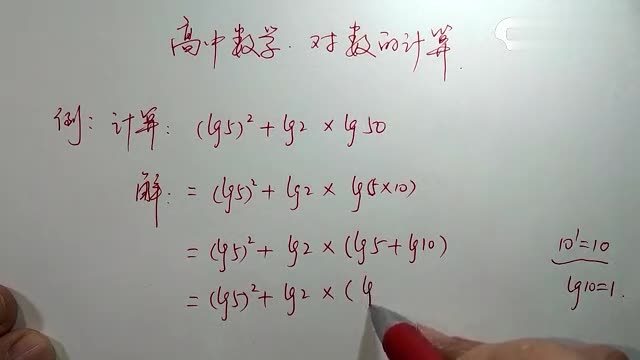 高中数学.对数的计算.
例: 计算: (lg5)² + lg2 × lg50
解: = (lg5)² + lg2 × lg(5×10)
= (lg5)² + lg2 × (lg5 + lg10)
10¹=10
= (lg5)² + lg2 × (lg
lg10=1.